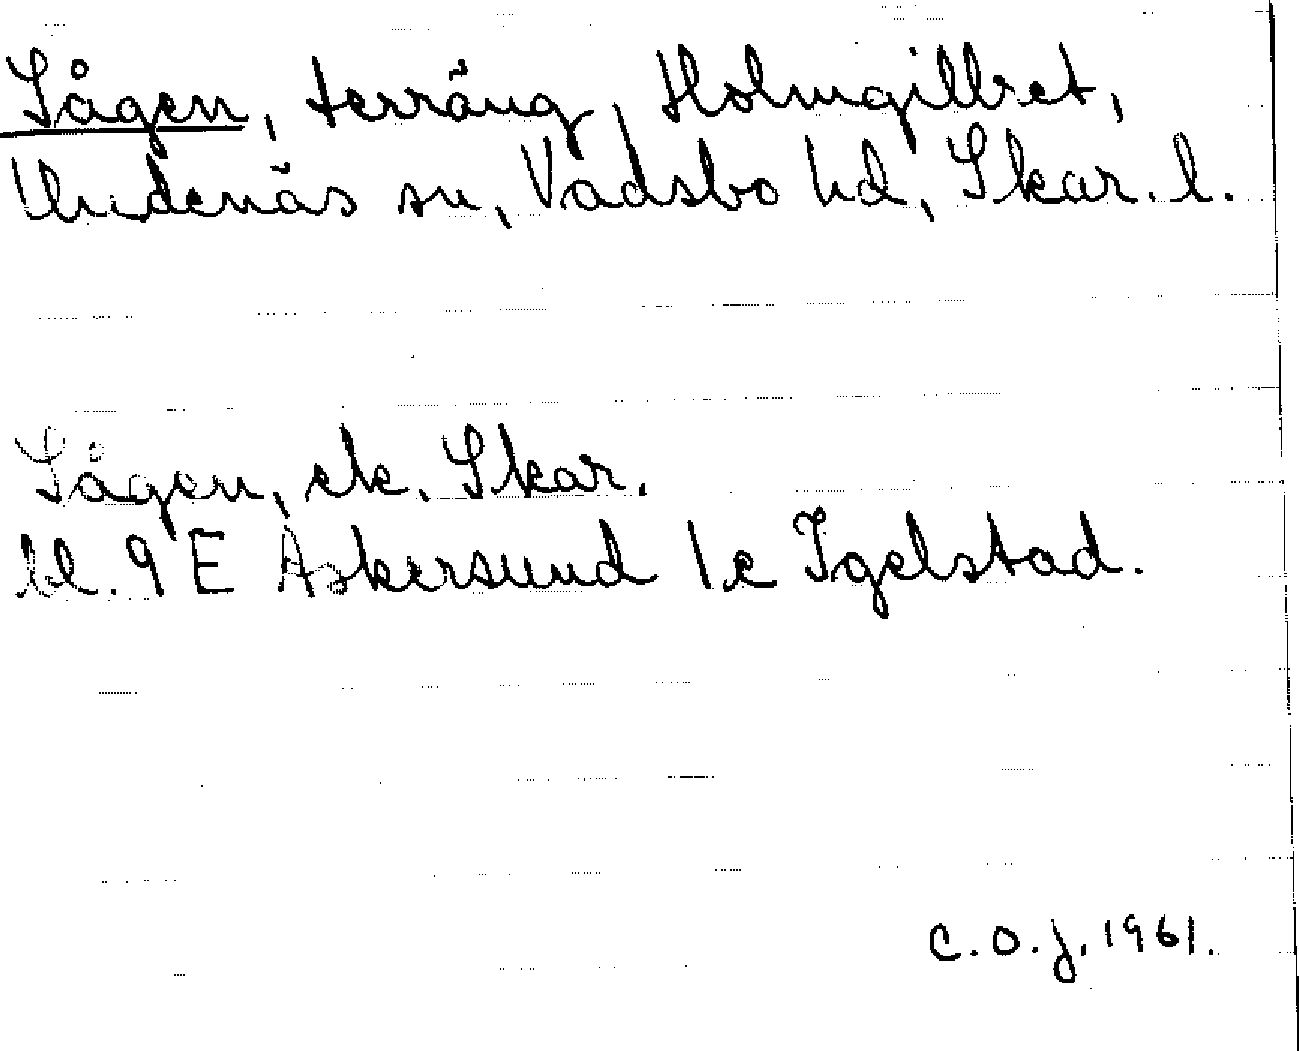 Sågen, terräng, Holmgillret,
Undenäs sn, Vadsbo hd, Skar. l.
Sågen, ek. Skar.
bl. 9 E Askersund 1 c Igelstad.
C.O.J. 1961.